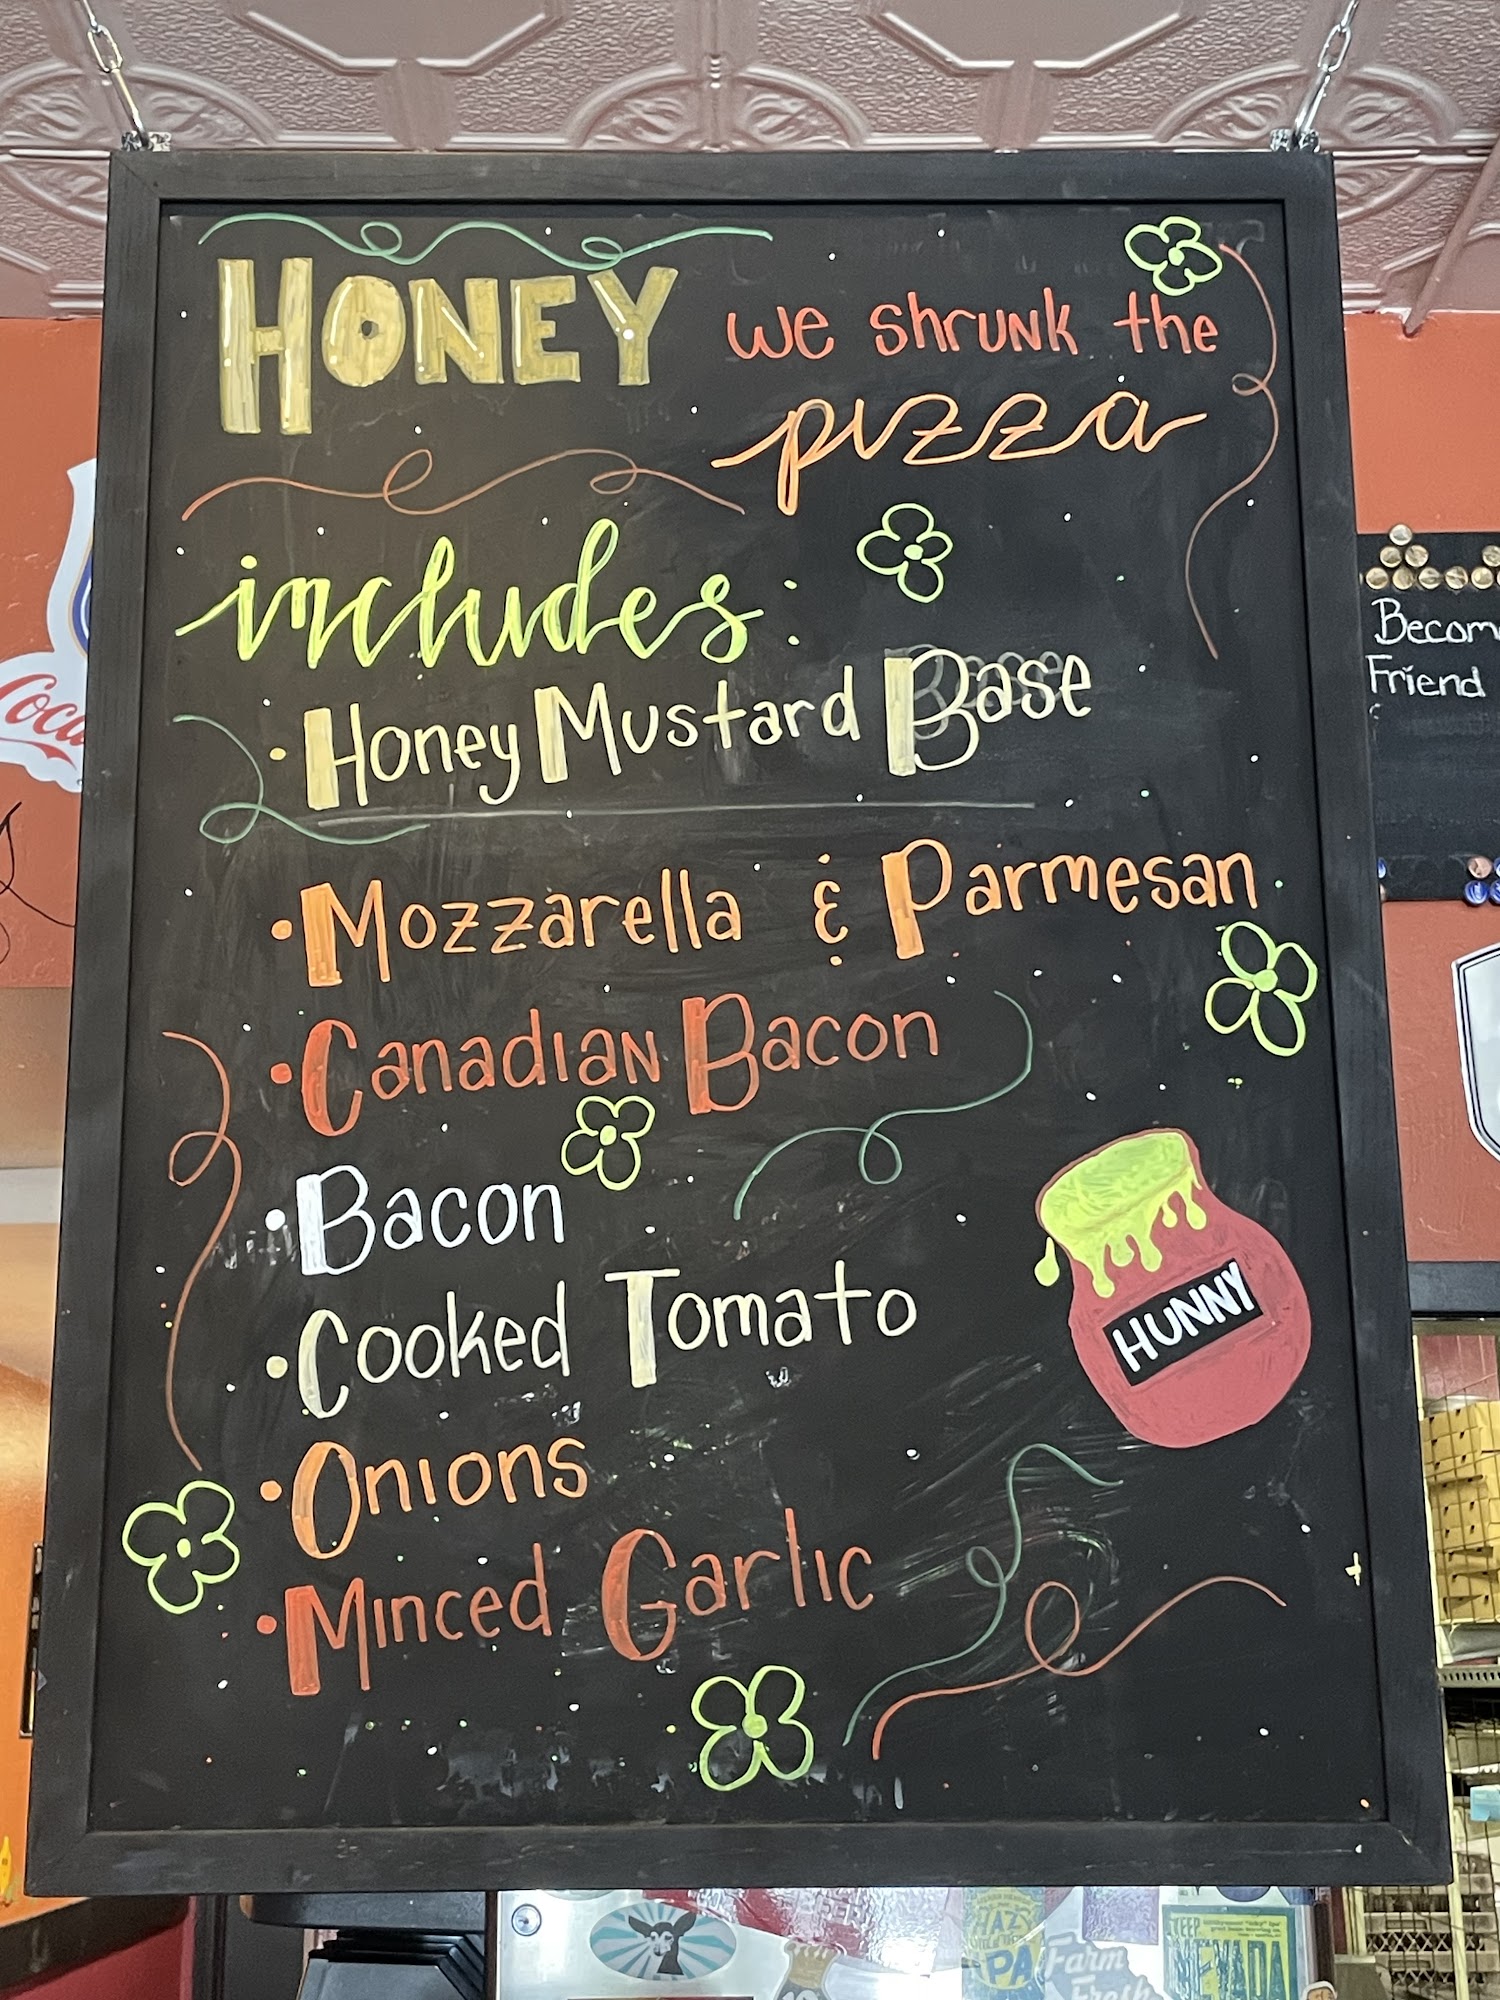 HONEY we shrunk the
pizza
includes:
• Honey Mustard Base
• Mozzarella & Parmesan
• Canadian Bacon
• Bacon
• Cooked Tomato
• Onions
• Minced Garlic
HUNNY
Friend
Farm
Fresh